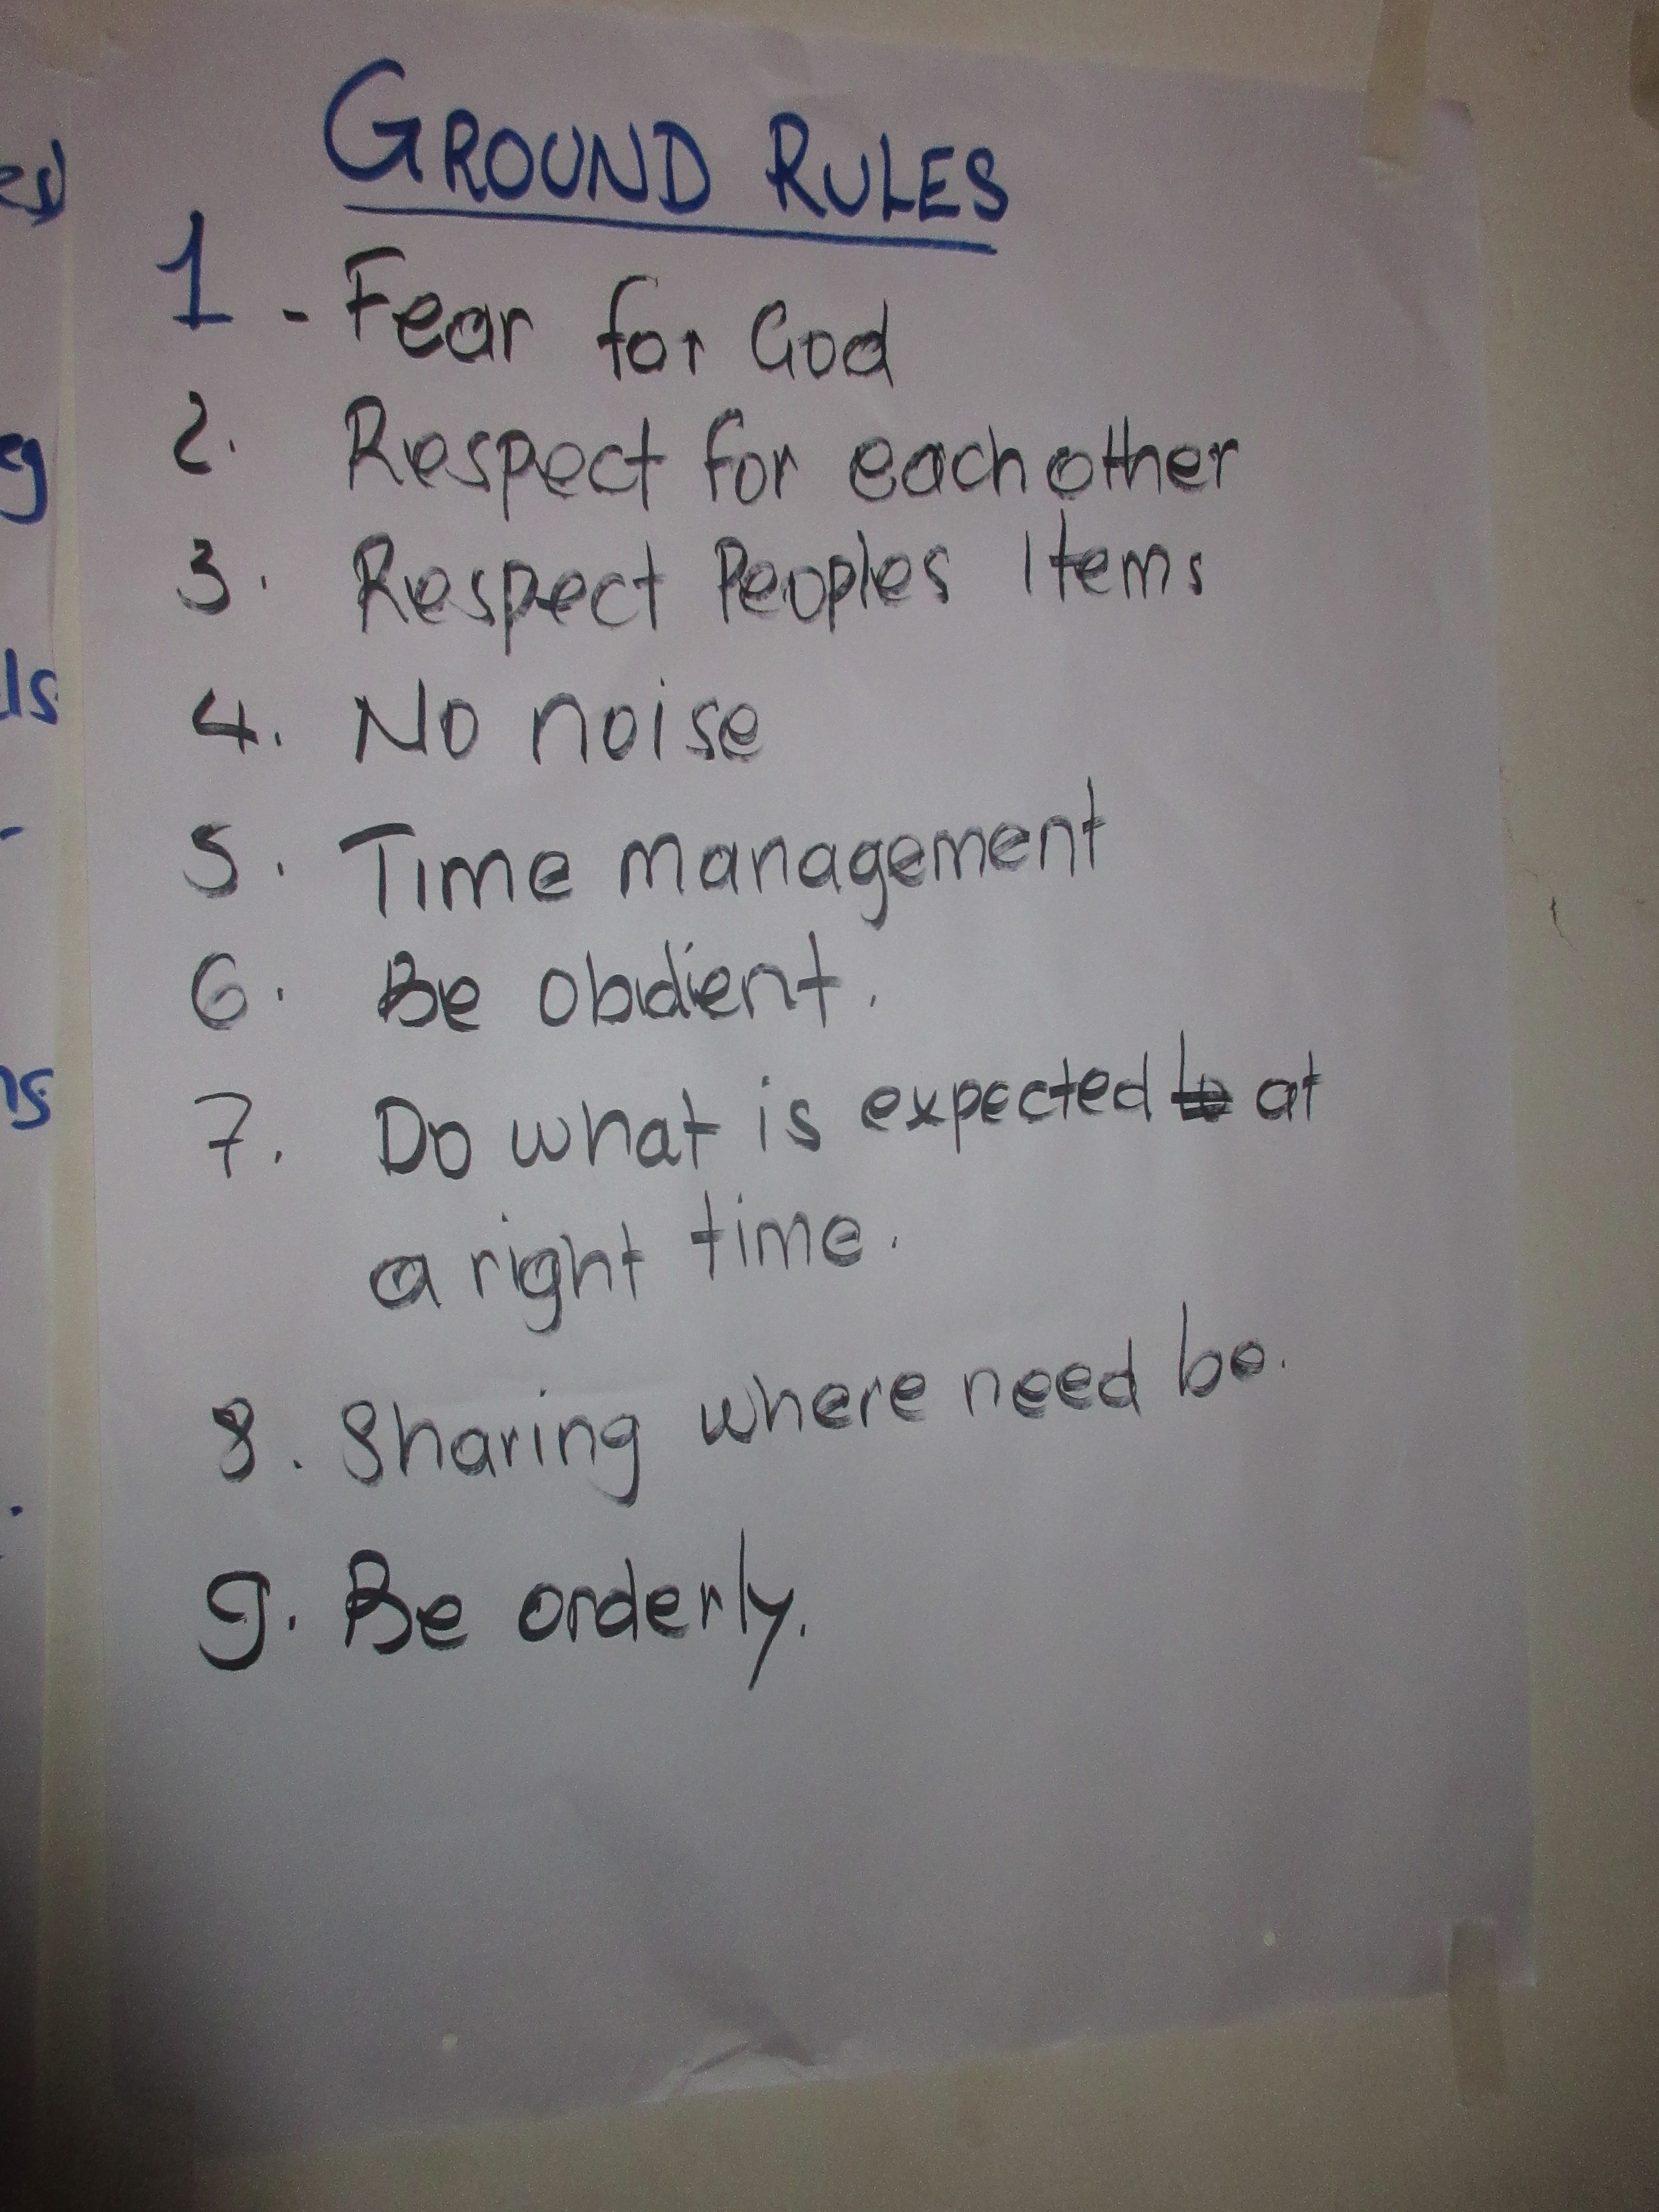 GROUND RULES
1 - Fear for God
2. Respect for each other
3. Respect Peoples Items
4. No noise
5. Time management
6. Be obidient.
7. Do what is expected to at
a right time.
8. Sharing where need be.
9. Be orderly.